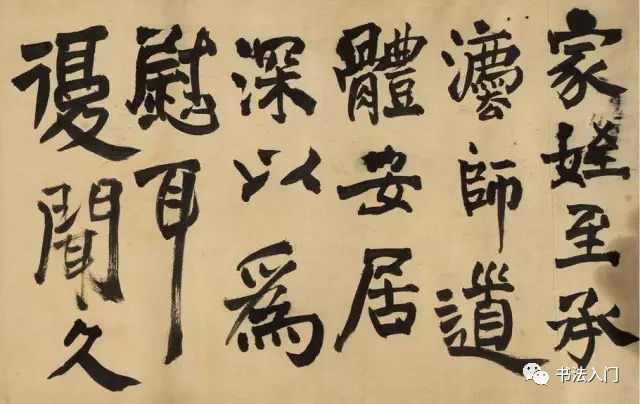 家姪至承
灋師道
體安居
深以爲
慰耳
復聞久
书法入门